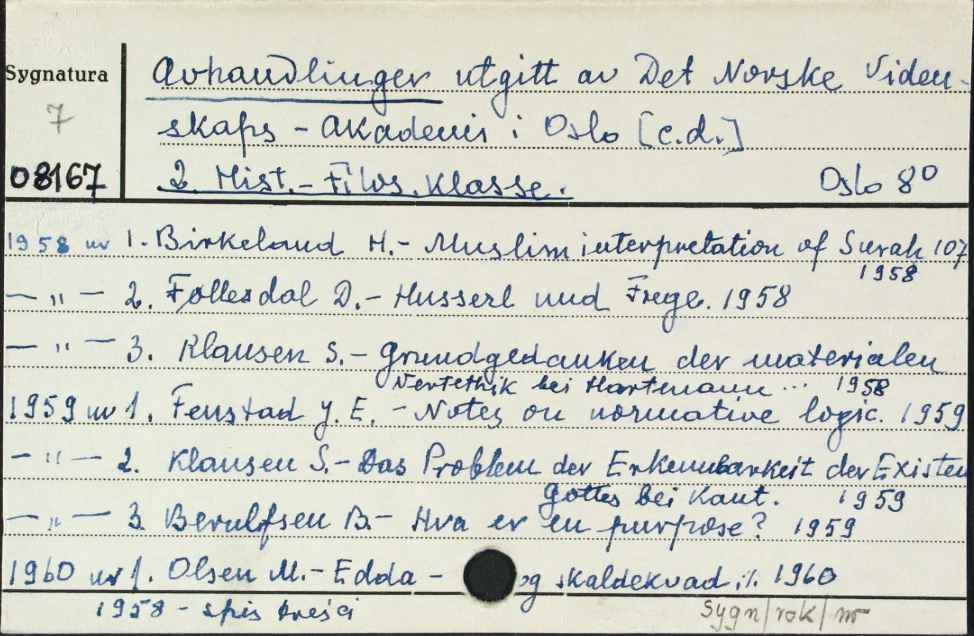 Sygnatura
7
08167
Avhandlinger utgitt av Det Norske Viden-
skaps - Akademi i Oslo [c.d.]
2. Hist. - Filos. Klasse. Oslo 8°
1958 nr 1. Birkeland H. - Muslim interpretation of Surah 107
1958
— " — 2. Føllesdal D. - Husserl und Frege. 1958
— " — 3. Klausen S. - Grundgedanken der materialen
Wertethik bei Hartmann ... 1958
1959 nr 1. Fenstad J. E. - Notes on normative logic. 1959
— " — 2. Klausen S. - Das Problem der Erkennbarkeit der Existen
Gottes bei Kant. 1959
— " — 3. Berulfsen B. - Hva er en purpose? 1959
1960 nr 1. Olsen M. - Edda - og skaldekvad. 1. 1960
1958 - spis treści
Sygn/rok/nr